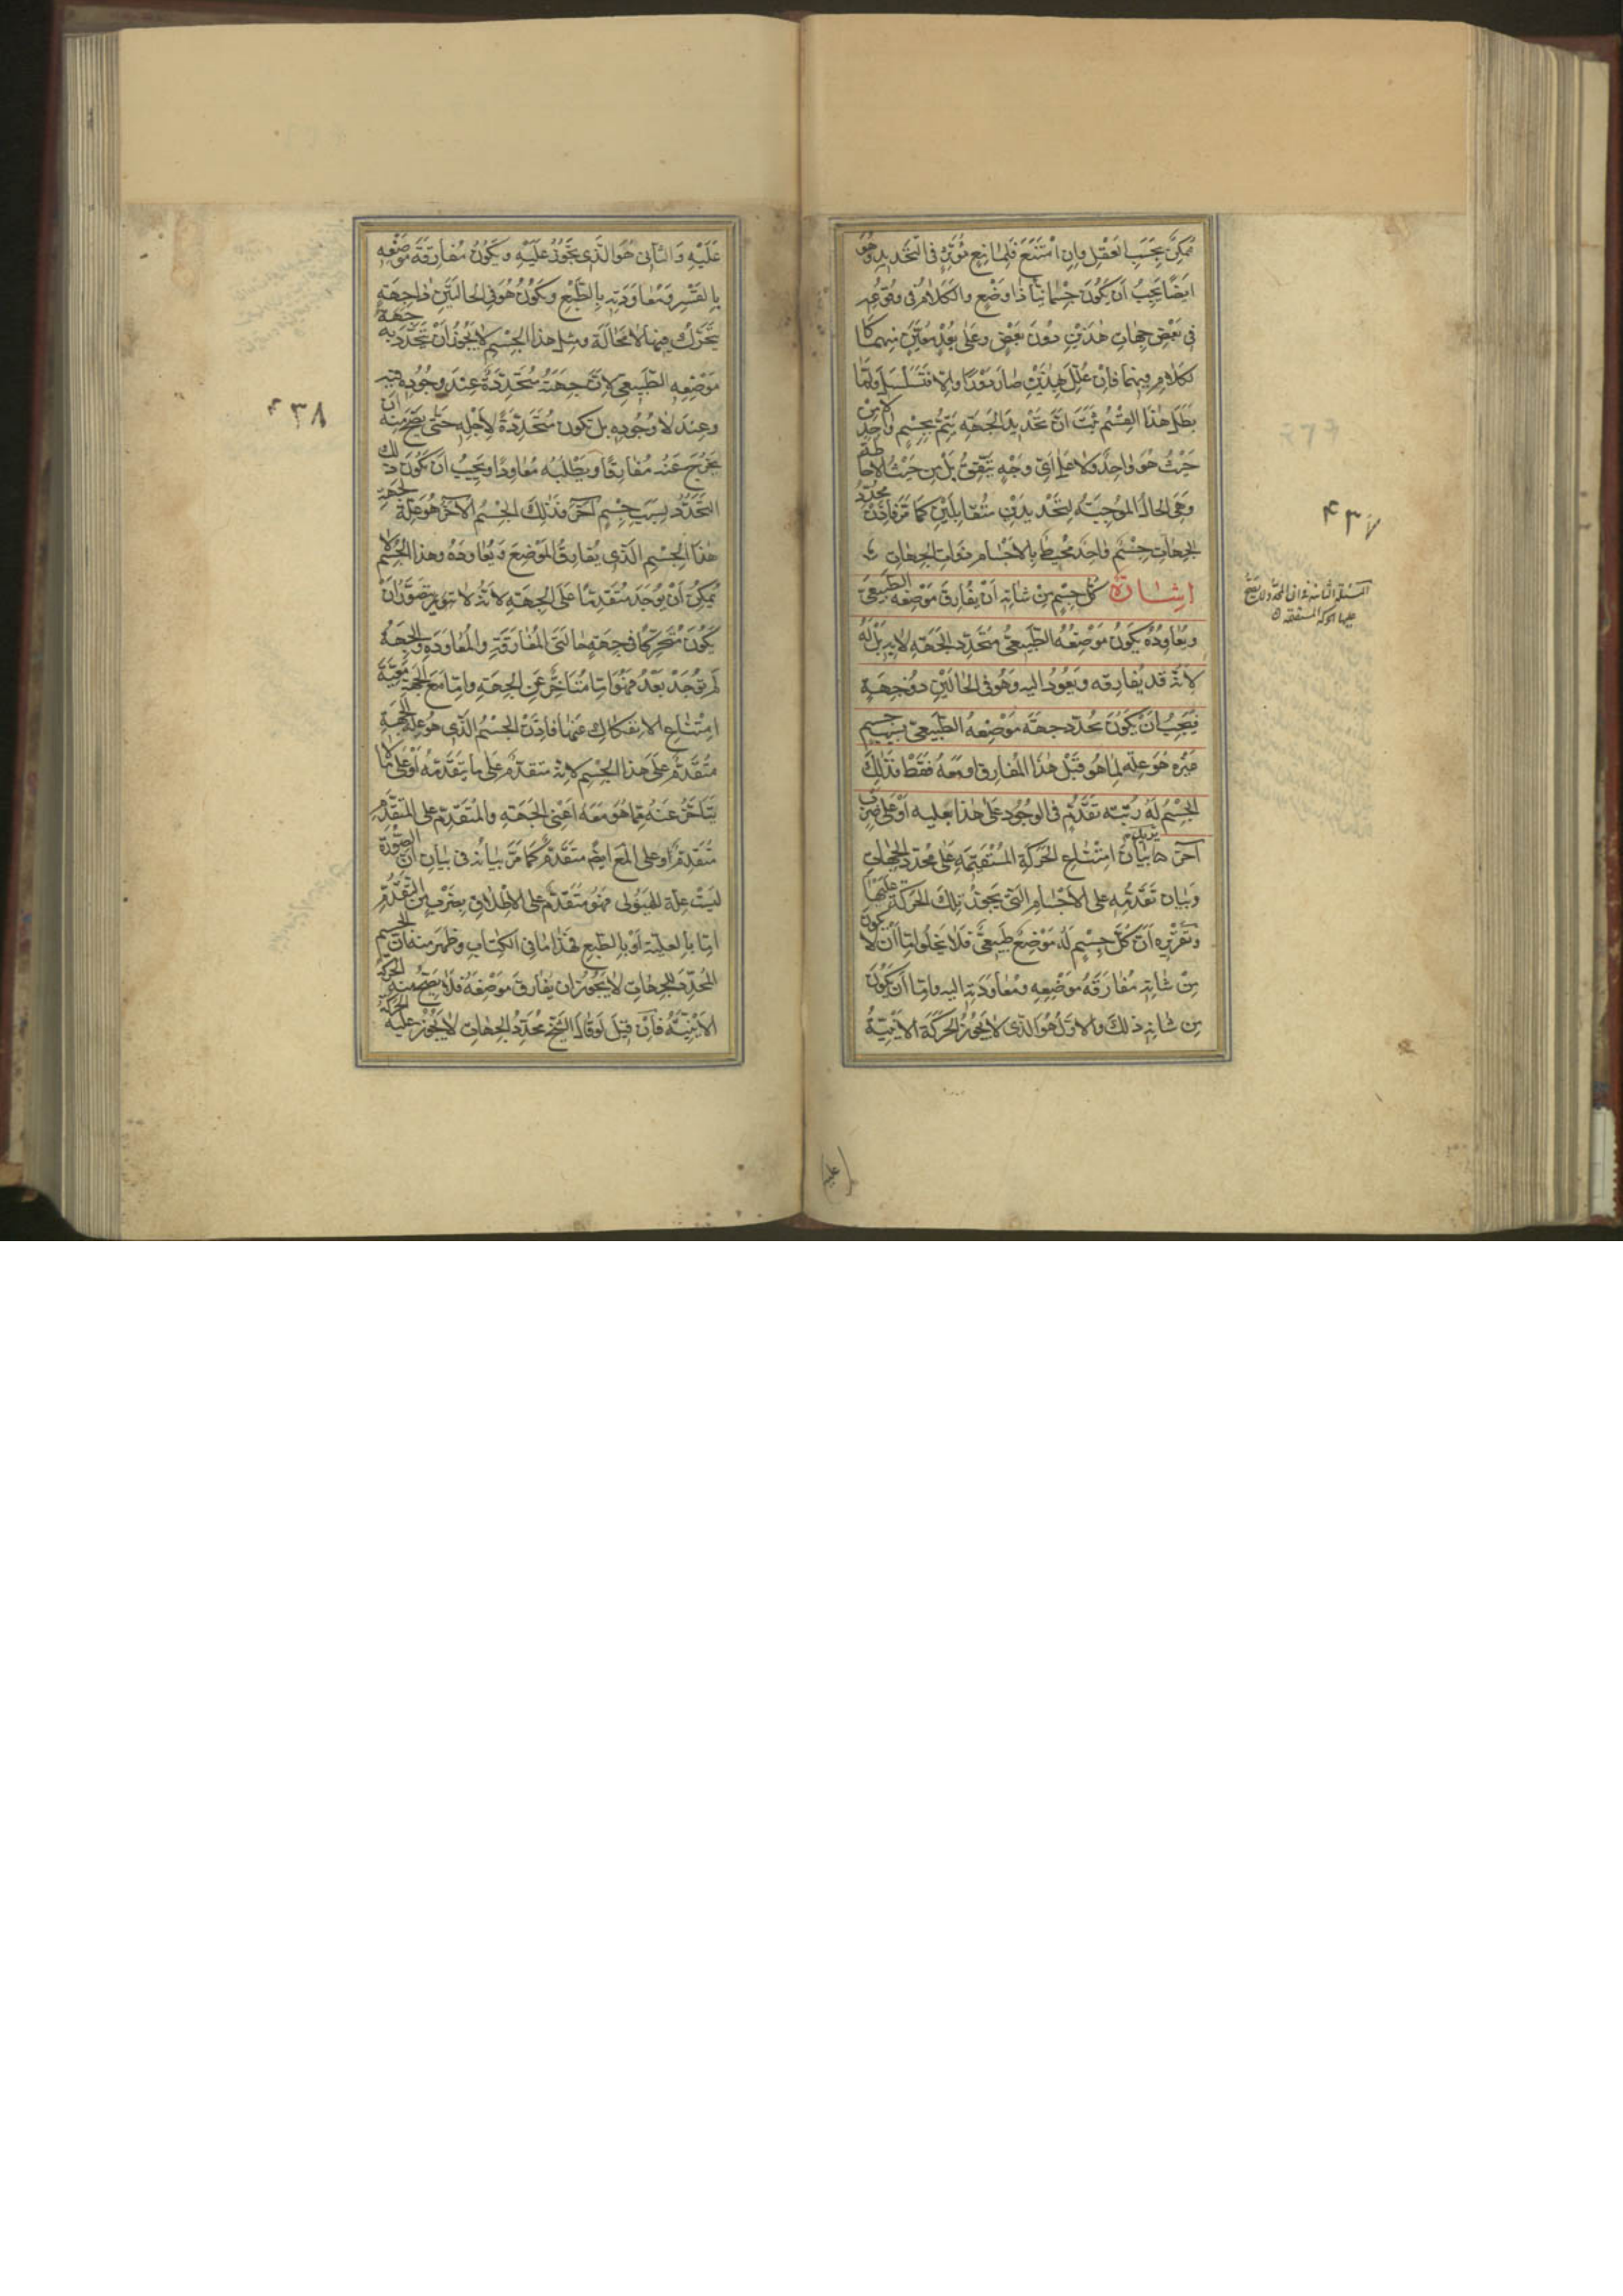 ممكن بحسب العقل وان امتنع فلمانع مؤثر في التحديد وهو
ايضا يجب ان يكون جسمانيا ذا وضع والكلام في وقوعه
في بعض جهات هذين دون بعض وعلى بعد معين منهما كا
لكلام فيهما فان علل بهذين صار دورا والا فتسلسل ولما
بطل هذا القسم ثبت ان تحديد الجهة يتم بجسم واحد لا من
حيث هو واحد ولا على اي وجه يتفق بل من حيث الاحاطة
وهي الحال الموجبة لتحديدين متقابلين كما مر فاذن محدد
الجهات جسم واحد محيط بالاجسام ذوات الجهات
اشارة كل جسم من شانه ان يفارق موضعه الطبيعي
ويعاوده يكون موضعه الطبيعي متحدد الجهة لا به بل له
لانه قد يفارقه ويعود اليه وهو في الحالين ذو جهة
فيجب ان يكون تحدد جهة موضعه الطبيعي بسبب جسم
غيره هو علة لما هو قبل هذا المفارق او معه فقط فذلك
الجسم له رتبة تقدم في الوجود على هذا بعلية او على ضرب
آخر يريد بيان امتناع الحركة المستقيمة على محدد الجهات
وبيان تقدمه على الاجسام التي يجوز تلك الحركة عليها
وتقريره ان كل جسم له موضع طبيعي فلا يخلو اما ان لا يكون
من شانه مفارقة موضعه ومعاودته اليه واما ان يكون
من شانه ذلك والاول هو الذي لا يجوز الحركة الاينية
المسئلة الثامنة في ان المحدد لا يصح
عليها الحركة المستقيمة
۴۳۷
عليه
عليه والثاني هو الذي يجوز عليه ويكون مفارقة موضعه
بالقسر ومعاودته بالطبع ويكون هو في الحالتين ذا جهة
يتحرك فيها لا محالة ومثل هذا الجسم لا يجوز ان يتحدد به جهة
موضعه الطبيعي لان جهته متحددة عند وجوده فيه
وعند لا وجوده بل تكون متحددة لاجله حتى يصح منه ان
يخرج عنه مفارقا ويطلبه معاودا ويجب ان يكون ذلك
التحدد بسبب جسم آخر فذلك الجسم الآخر هو علة لجهة
هذا الجسم الذي يفارق الموضع ويعاوده وهذا الجسم لا
يمكن ان يوجد متقدما على الجهة لانه لا يتصور ان
يكون متحركا في جهة حالتي المفارقة والمعاودة والجهة
لم توجد بعد فهو اما متاخر عن الجهة واما مع الجهة معية
امتناع الانفكاك عنها فاذن الجسم الذي هو علة الجهة
متقدم على هذا الجسم لانه متقدم على ما يتقدمه او على ما لا
يتاخر عنه مما هو معه اعني الجهة والمتقدم على المتقدم
متقدم او على المع ايضا متقدم كما مر بيانه في بيان ان الصورة
ليست علة للهيولى فهو متقدم على الاطلاق بضرب من التقدم
اما بالعلية او بالطبع فهذا ما في الكتاب وظهر منه ان الجسم
المحدد للجهات لا يجوز ان يفارق موضعه فلا يصح منه الحركة
الاينية فان قيل لو قال الشيخ محدد الجهات لا يجوز عليه الحركة
۴۳۸